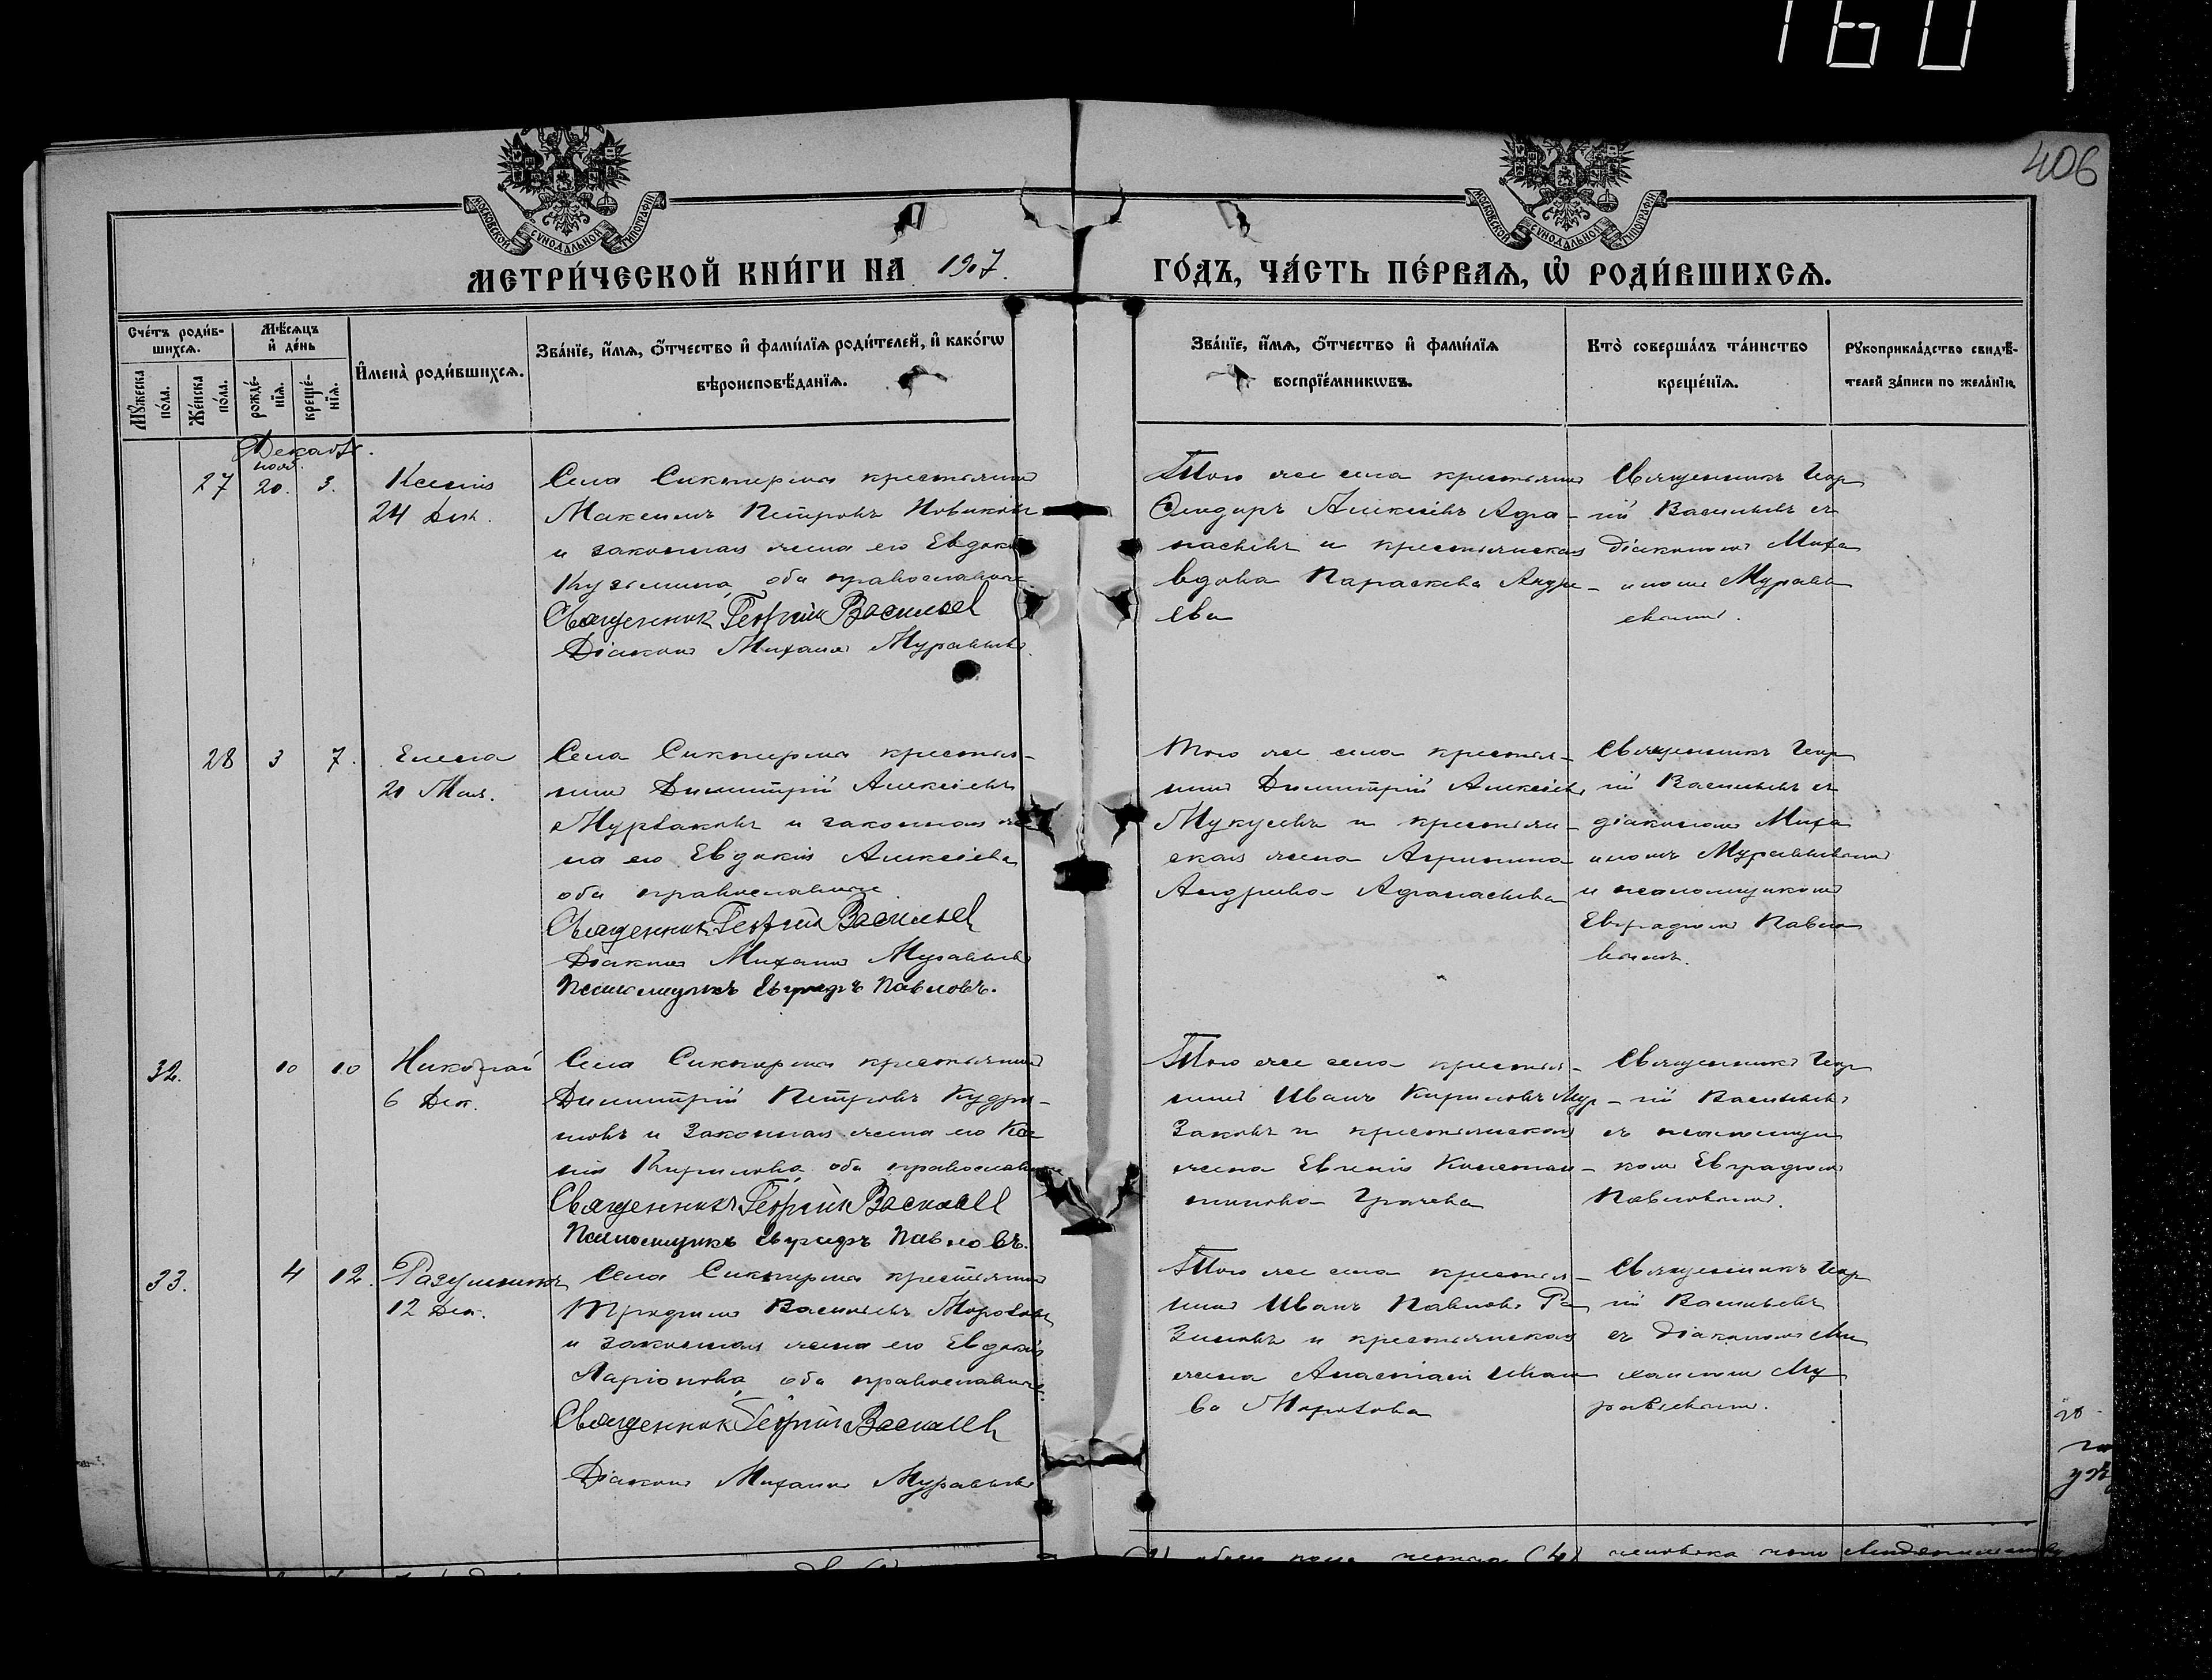 160
406
МОСКОВСКОЙ СѴНОДАЛЬНОЙ ТИПОГРАФІИ
МОСКОВСКОЙ СѴНОДАЛЬНОЙ ТИПОГРАФІИ
МЕТРИ́ЧЕСКОЙ КНИ́ГИ НА 1907.
ГО́ДЪ, ЧА́СТЬ ПЕ́РВАѦ, Ѡ҆ РОДИ́ВШИХСѦ.
Сче́тъ роди́в-
шихсѧ.
Мꙋ́жеска по́ла.
Же́нска по́ла.
Мѣ́сѧцъ
и҆ де́нь
рожде́-
нїѧ.
креще́-
нїѧ.
И҆мена̀ роди́вшихсѧ.
Зва́нїе, и҆́мѧ, ѻ҆́тчество и҆ фами́лїѧ роди́телей, и҆ како́гѡ
вѣроисповѣ́данїѧ.
Зва́нїе, и҆́мѧ, ѻ҆́тчество и҆ фами́лїѧ
воспрїе́мникѡвъ.
Кто̀ соверша́лъ та́инство
креще́нїѧ.
Рꙋкоприкла́дство свидѣ́-
телей за́писи по жела́нїю.
Декабрь.
нояб.
27 20. 3. Ксенія
24 Янв.
Села Сиктерма крестьянинъ
Максимъ Петровъ Новиковъ
и законная жена его Евдокія
Кузьмина, оба православные
Священник Георгій Васильев
Діаконъ Михаилъ Муравьевъ.
Того же села крестьянинъ
Ѳеодоръ Алексіевъ Афа-
насьевъ и крестьянская
вдова Параскева Андре-
ева
Священникъ Геор
гій Васильевъ съ
діакономъ Миха
иломъ Муравь
евымъ.
28 3 7. Елена
21 Мая.
Села Сиктерма крестья-
нинъ Димитрій Алексіевъ
Мурзаковъ и законная же
на его Евдокія Алексіева
оба православные
Священник Георгій Васильев
Діаконъ Михаилъ Муравьевъ
Псаломщикъ Евграфъ Павловъ.
Того же села крестья-
нинъ Димитрій Алексіевъ
и крестьян-
ская жена Агрипина
Андреева Афанасьева
Священникъ Геор
гій Васильевъ съ
діакономъ Миха
иломъ Муравьевымъ
и псаломщикомъ
Евграфомъ Павло
вымъ.
32. 10 10 Николай
6 Дек.
Села Сиктерма крестьянинъ
Димитрій Петровъ Кудря-
шовъ и законная жена его Ксе
нія Кирилова, оба православные
Священникъ Георгій Васильев
Псаломщикъ Евграфъ Павловъ.
Того же села крестья-
нинъ Иванъ Кириловъ Мур-
заковъ и крестьянская
жена Евгенія Констан-
тинова Грачева
Священникъ Геор
гій Васильевъ
съ псаломщи
комъ Евграфомъ
Павловымъ.
33. 4 12. Разумникъ
12 Дек.
Села Сиктерма крестьянинъ
Трофимъ Васильевъ Морозовъ
и законная жена его Евдокія
Ларіонова, оба православные.
Священник Георгій Васильев
Діаконъ Михаилъ Муравьевъ
Того же села крестья-
нинъ Иванъ Павловъ Ра
зиновъ и крестьянская
жена Анастасія Ива
ва Морозова
Священникъ Геор
гій Васильевъ
съ діакономъ Ми
хаиломъ Му
равьевымъ.